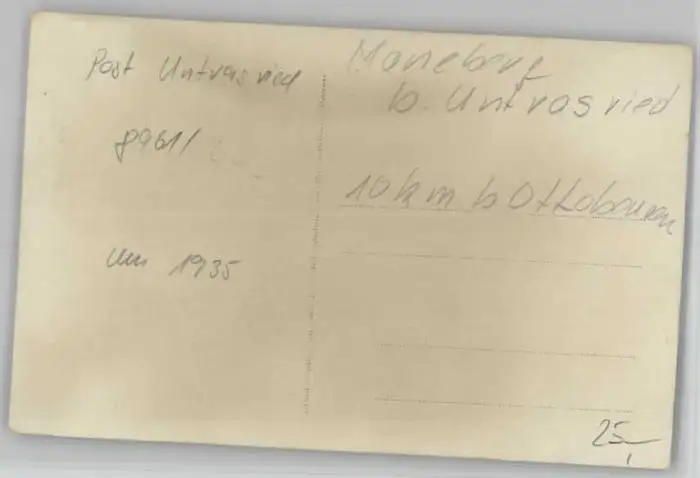 Post Untrasried
8961/
Um 1935
Maneberg
b. Untrasried
10 km b Ottobeuren
25,-